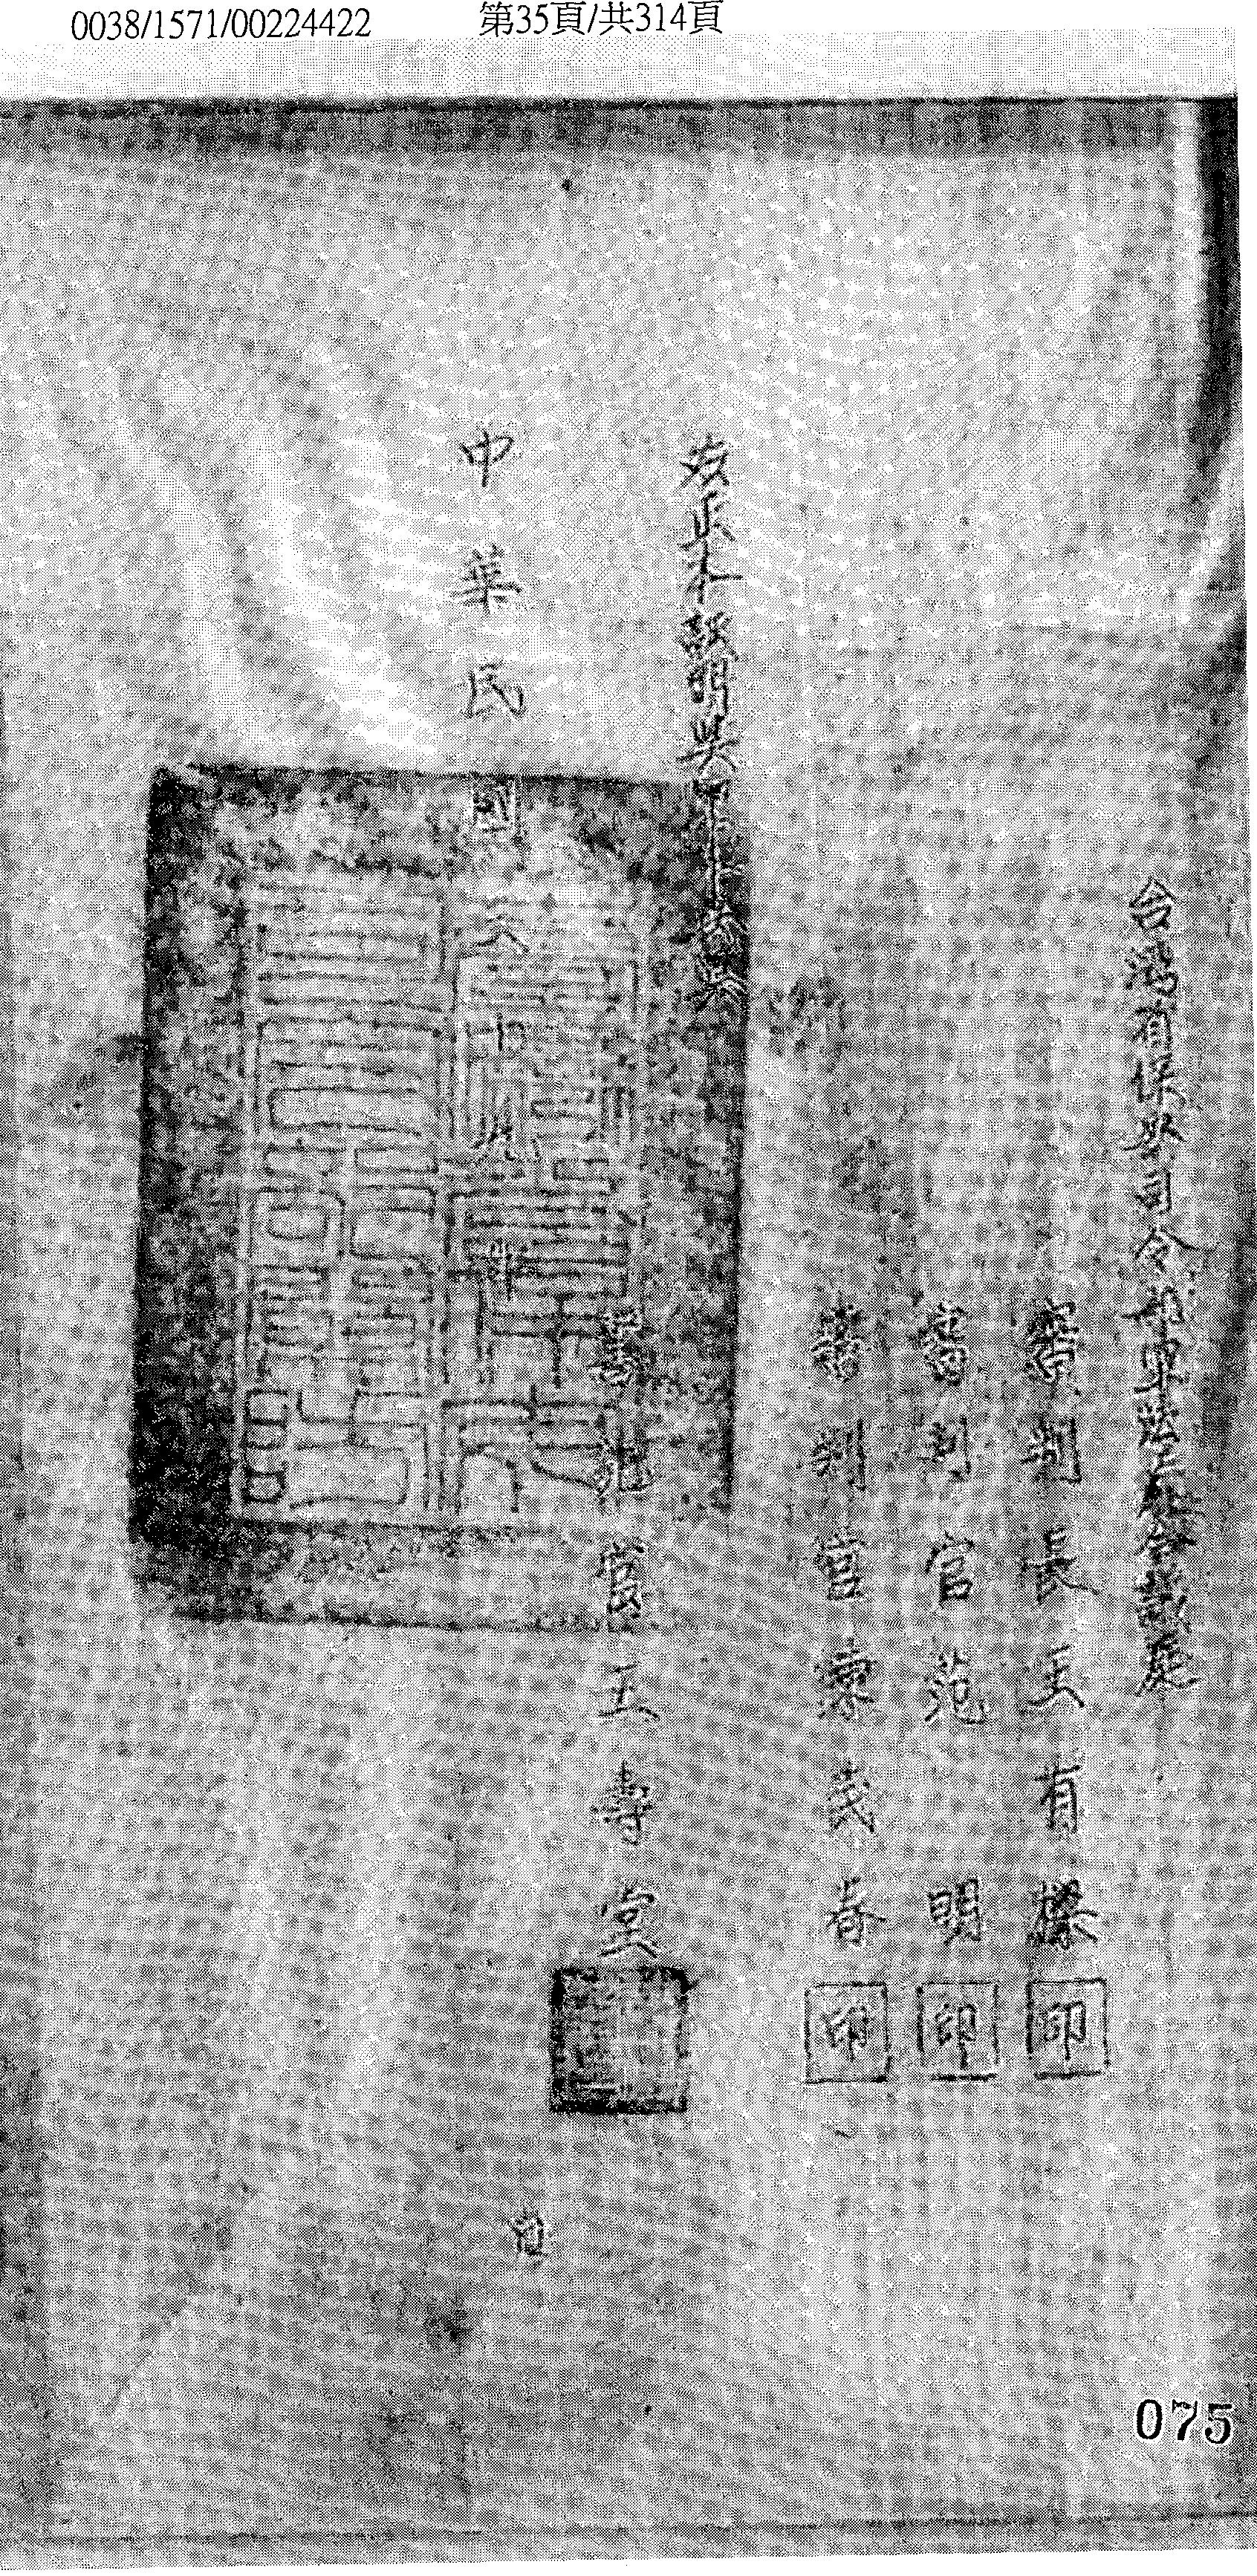 0038/1571/00224422 第35頁/共314頁
台灣省保安司令部軍法處合議庭
審判長王有樑 印
審判官范明 印
審判官束茂春 印
右正本證明與原本無異
書記官王壽堂
中華民國 十 年 月 日
075